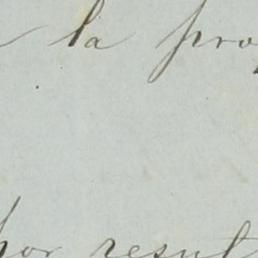 la pro
por result